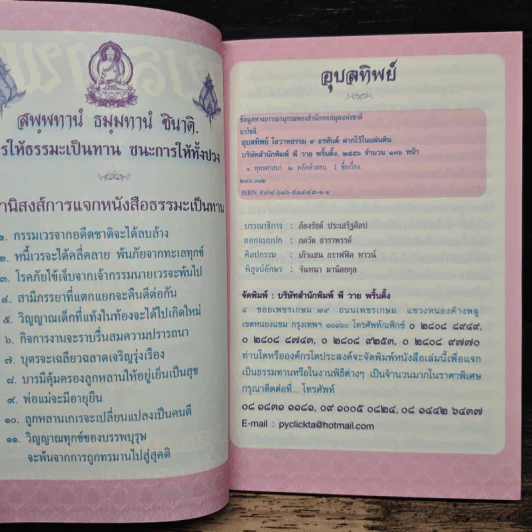 สพฺพทานํ ธมฺมทานํ ชินาติ.
รให้ธรรมะเป็นทาน ชนะการให้ทั้งปวง
านิสงส์การแจกหนังสือธรรมะเป็นทาน
๑. กรรมเวรจากอดีตชาติจะได้ลบล้าง
๒. หนี้เวรจะได้คลี่คลาย พ้นภัยจากทะเลทุกข์
๓. โรคภัยไข้เจ็บจากเจ้ากรรมนายเวรจะพ้นไป
๔. สามีภรรยาที่แตกแยกจะคืนดีต่อกัน
๕. วิญญาณเด็กที่แท้งในท้องจะได้ไปเกิดใหม่
๖. กิจการงานจะราบรื่นสมความปรารถนา
๗. บุตรจะเฉลียวฉลาดเจริญรุ่งเรือง
๘. บารมีคุ้มครองลูกหลานให้อยู่เย็นเป็นสุข
๙. พ่อแม่จะมีอายุยืน
๑๐. ลูกหลานเกเรจะเปลี่ยนแปลงเป็นคนดี
๑๑. วิญญาณทุกข์ของบรรพบุรุษ
จะพ้นจากการถูกทรมานไปสู่สุคติ
อุบลทิพย์
ข้อมูลทางบรรณานุกรมของสำนักหอสมุดแห่งชาติ
นวโชติ
อุบลทิพย์ โอวาทธรรม ๙ อรหันต์ ฝากไว้ในแผ่นดิน
บริษัทสำนักพิมพ์ พี วาย พริ้นติ้ง, ๒๕๕๖ จำนวน ๑๓๖ หน้า
๑. พุทธศาสนา ๒. หลักคำสอน I. ชื่อเรื่อง.
๒๙๔.๓๑๒
ISBN ๙๗๘-๖๑๖-๙๑๔๔๓-๑-๑
บรรณาธิการ :
ออกแบบปก :
ศิลปกรรม : เก้าแสน กราฟฟิค ทาวน์
พิสูจน์อักษร : จันทนา
จัดพิมพ์ : บริษัทสำนักพิมพ์ พี วาย พริ้นติ้ง
๔ ซอยเพชรเกษม ๗๙ ถนนเพชรเกษม แขวงหนองค้างพลู
เขตหนองแขม กรุงเทพฯ ๑๐๑๖๐ โทรศัพท์/แฟ๊กซ์ ๐ ๒๘๐๘ ๘๙๔๙,
๐ ๒๘๐๘ ๘๗๔๓, ๐ ๒๘๐๘ ๙๒๕๓, ๐ ๒๘๐๘ ๙๗๗๐
ท่านใดหรือองค์กรใดประสงค์จะจัดพิมพ์หนังสือเล่มนี้เพื่อแจก
เป็นธรรมทานหรือในงานพิธีต่างๆ เป็นจำนวนมากในราคาพิเศษ
กรุณาติดต่อที่... โทรศัพท์
๐๘ ๑๘๓๑ ๑๑๘๑, ๐๙ ๑๐๐๕ ๐๘๒๔, ๐๘ ๑๔๔๒ ๖๔๓๗
E-mail : pyclickta@hotmail.com